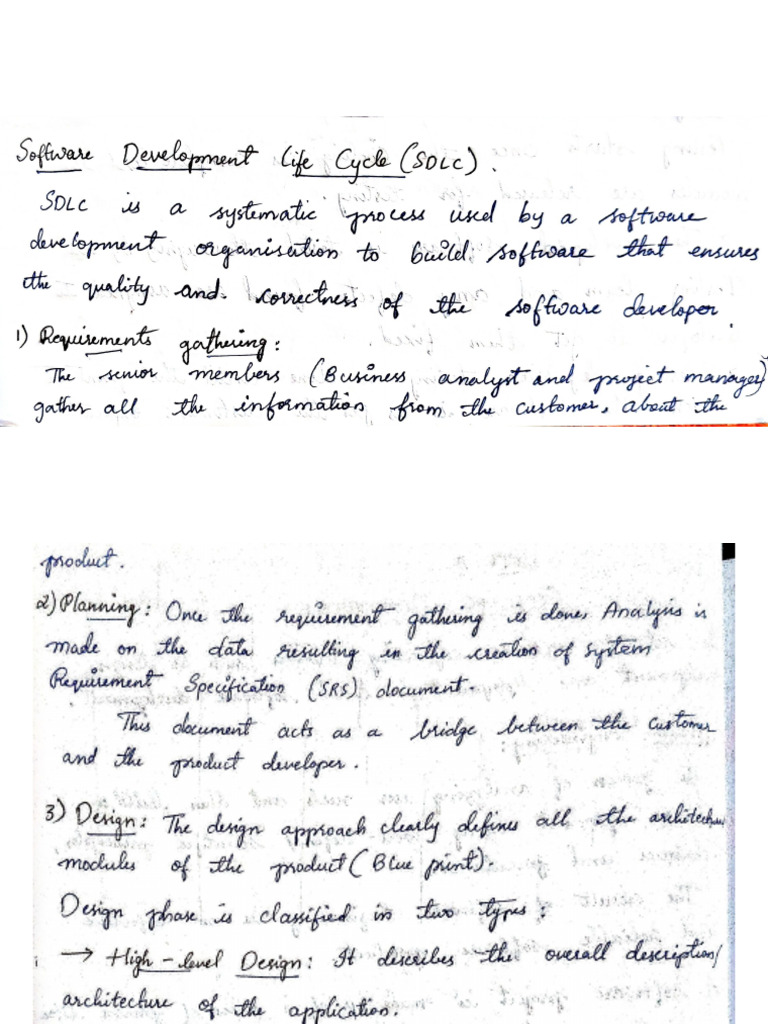 Software Development Life Cycle (SDLC).
SDLC is a systematic process used by a software
development organisation to build software that ensures
the quality and correctness of the software developer.
1) Requirements gathering:
The senior members (Business analyst and project manager)
gather all the information from the customer, about the
product.
2) Planning: Once the requirement gathering is done, Analysis is
made on the data resulting in the creation of System
Requirement Specification (SRS) document.
This document acts as a bridge between the customer
and the product developer.
3) Design: The design approach clearly defines all the
modules of the product (Blue print).
Design phase is classified in two types:
→ High-level Design: It describes the overall description/
architecture of the application.